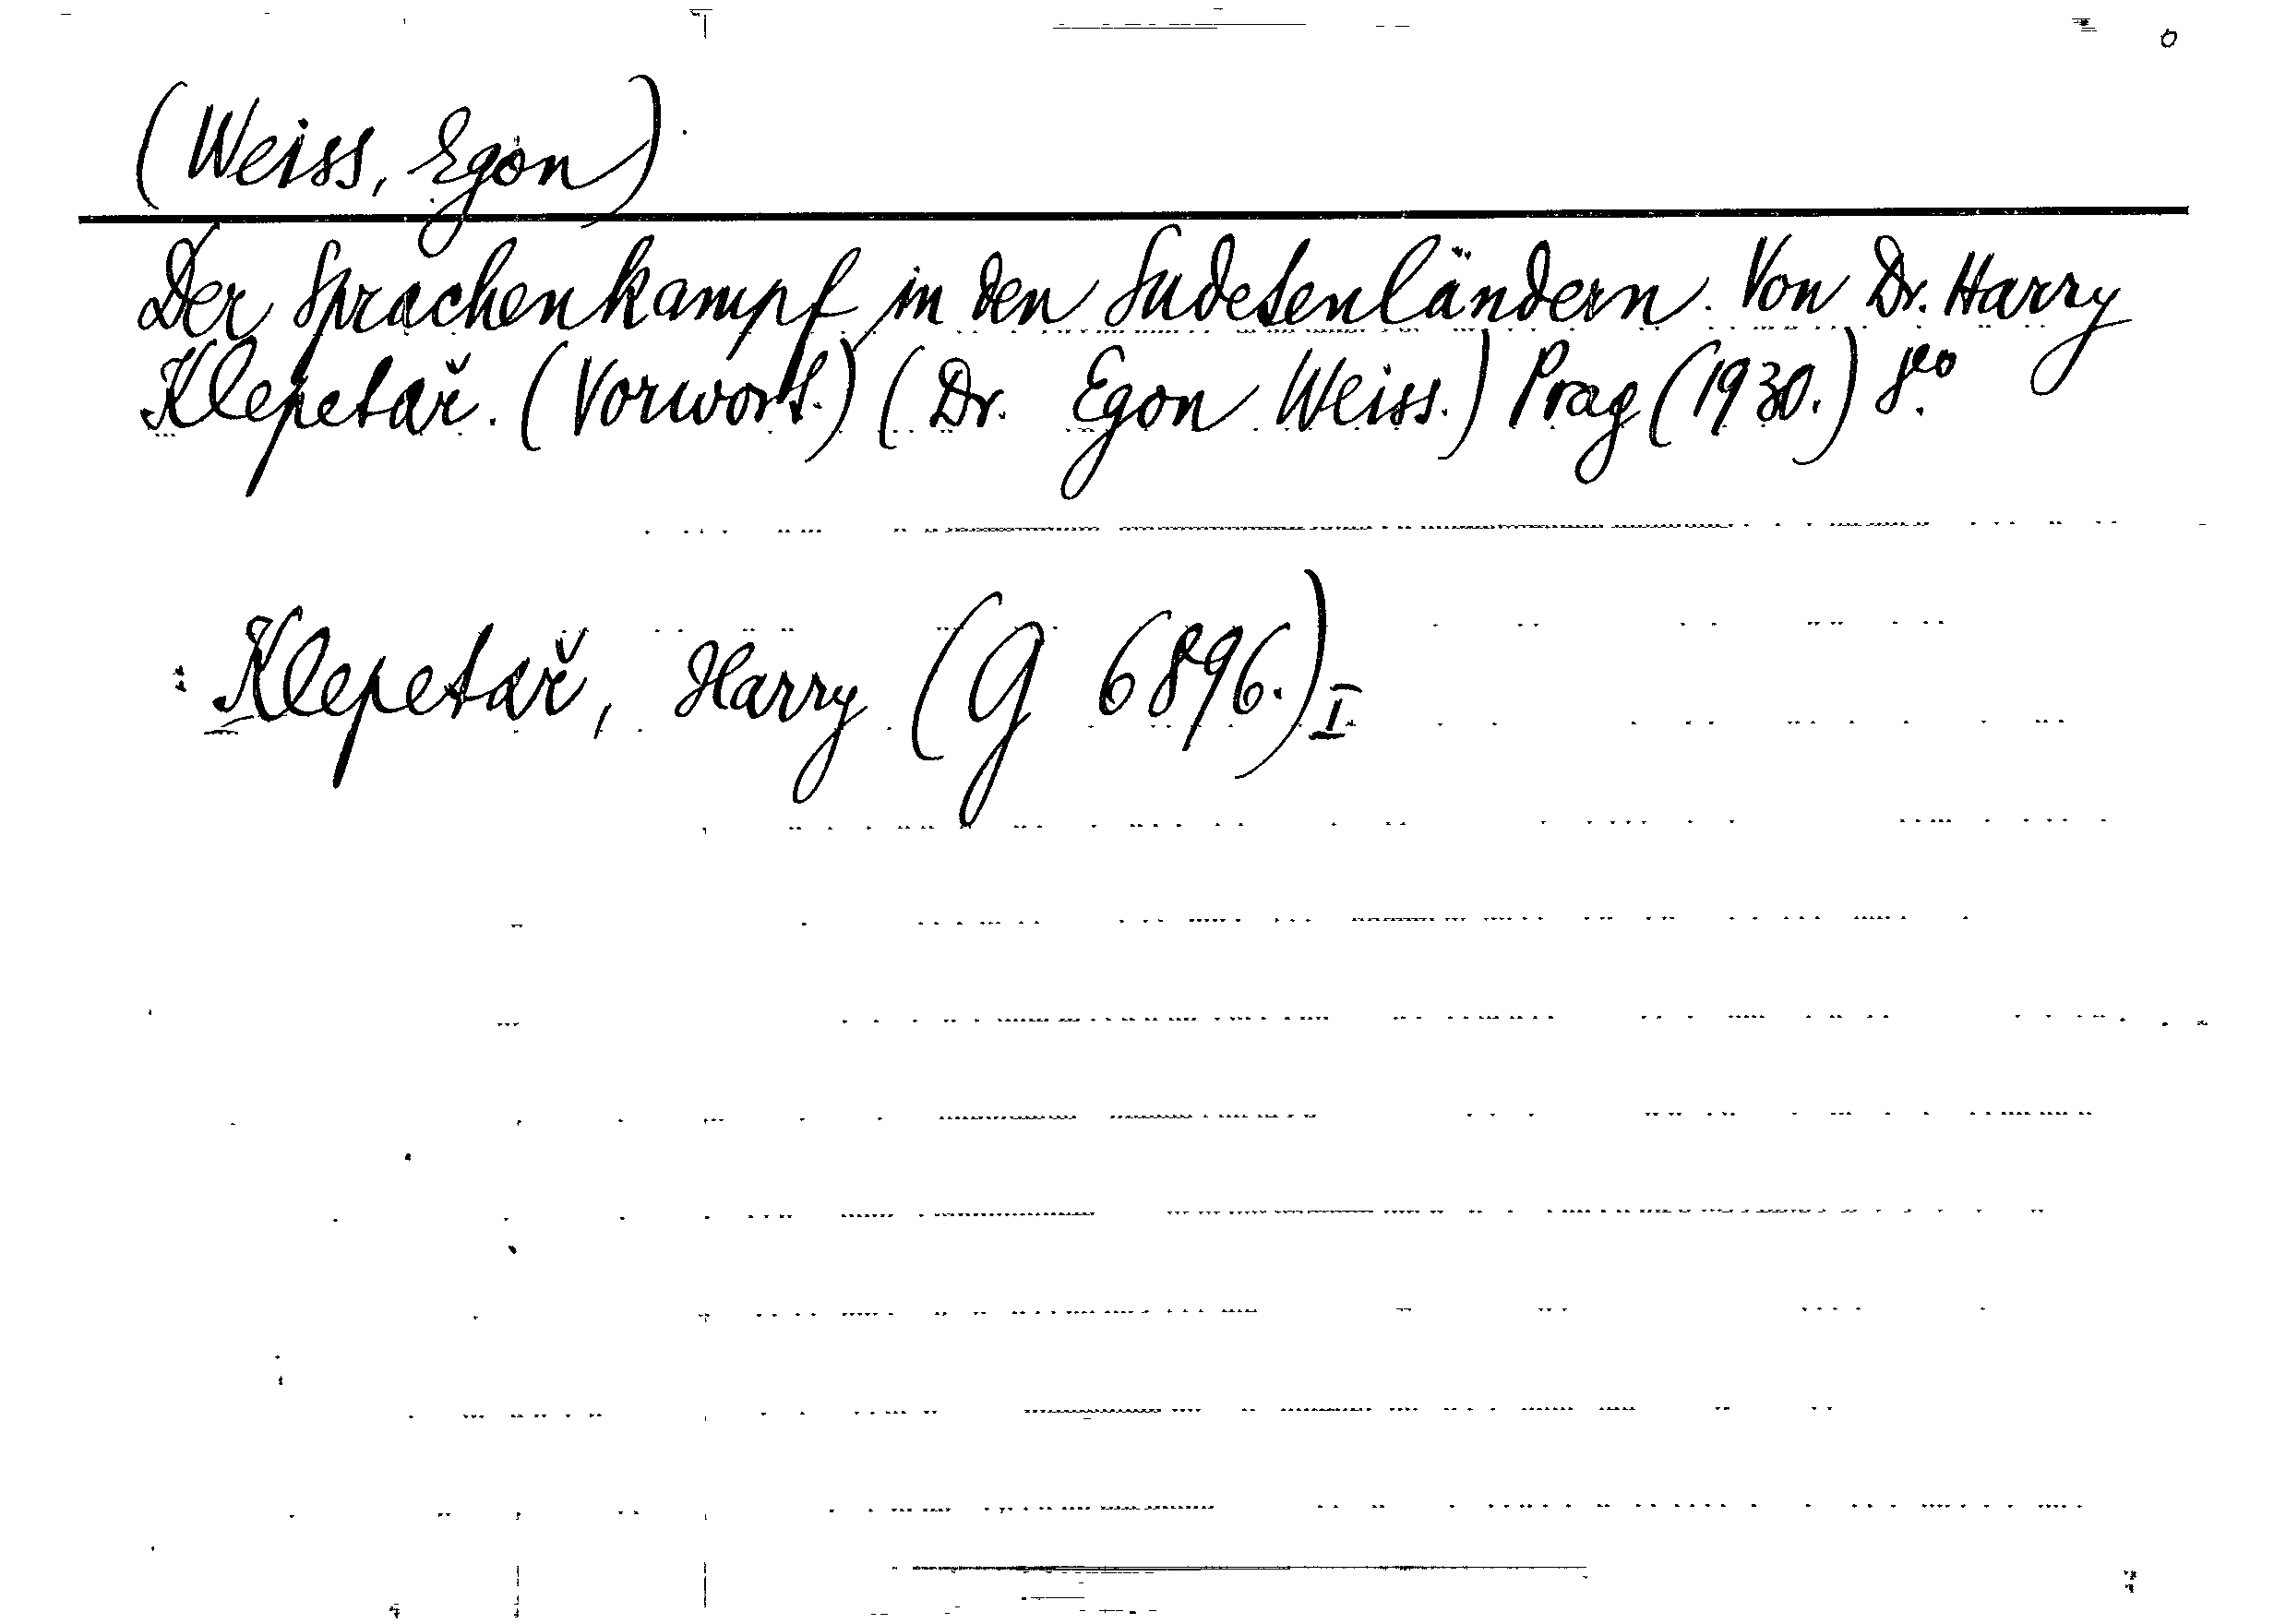 (Weiss, Egon)
Der Sprachenkampf in den Sudetenländern. Von Dr. Harry
Klepetař. (Vorwort.) (Dr. Egon Weiss.) Prag (1930.) 8vo.
: Klepetař, Harry (G 6896.) I